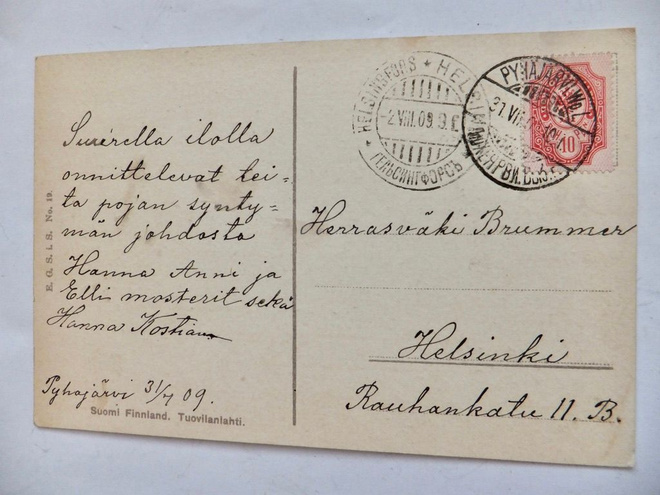 E. G. S. i. S. No. 19.
Suurella ilolla
onnittelevat tei-
tä pojan synty-
män johdosta
Hanna Anni ja
Elli mosterit sekä
Hanna
Pyhäjärvi 31/7 09.
Suomi Finnland. Tuovilanlahti.
HELSINGFORS * HELSINKI *
-2.VIII.09.
ГЕЛЬСИНГФОРСЪ
PYHÄJÄRVI. Wp. L.
10
Herrasväki Brummer
Helsinki
Rauhankatu 11. B.